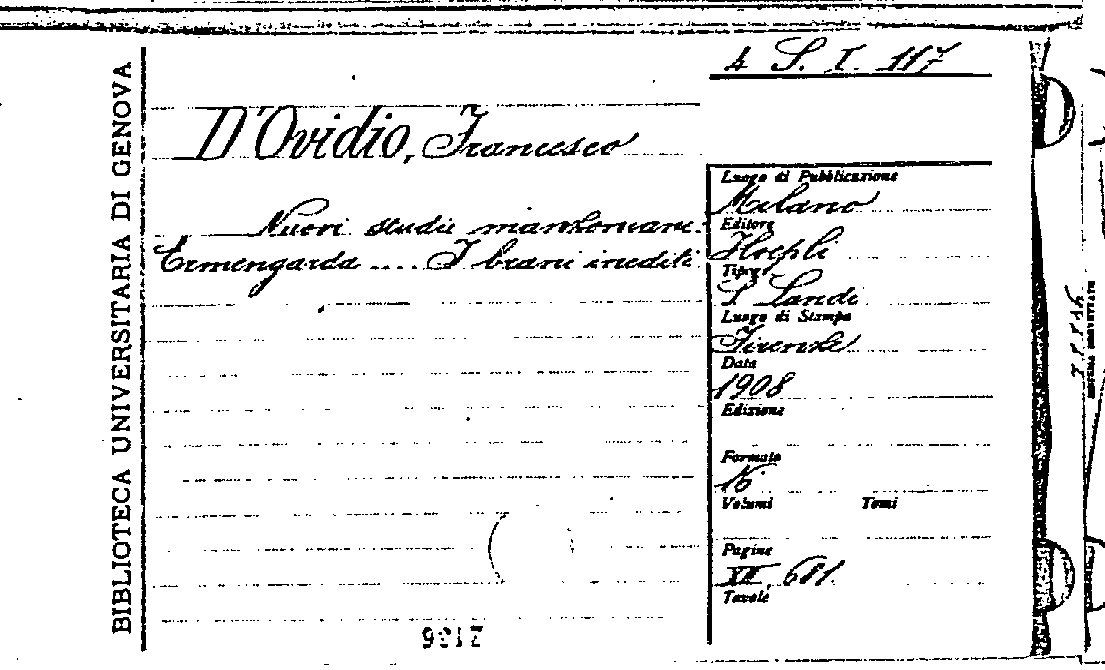 4 S. I. 117
BIBLIOTECA UNIVERSITARIA DI GENOVA
D'Ovidio, Francesco
Nuovi studii manzoniani.
Ermengarda .... I brani inediti
Luogo di Pubblicazione
Milano
Editore
Hoepli
Tipogr
S. Landi
Luogo di Stampa
Firenze
Data
1908
Edizione
Formato
16
Volumi Tomi
Pagine
XII, 681.
Tavole